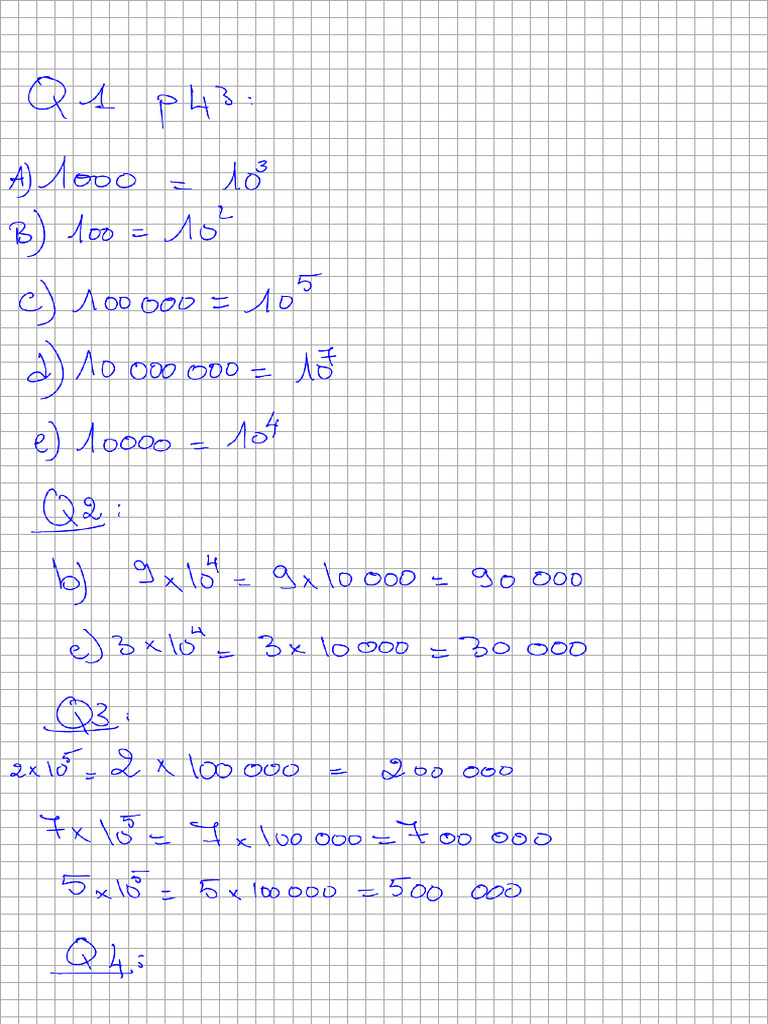 Q1 p43:
A) 1000 = 10³
B) 100 = 10²
c) 100 000 = 10⁵
d) 10 000 000 = 10⁷
e) 10000 = 10⁴
Q2:
b) 9 × 10⁴ = 9 × 10 000 = 90 000
e) 3 × 10⁴ = 3 × 10 000 = 30 000
Q3:
2 × 10⁵ = 2 × 100 000 = 200 000
7 × 10⁵ = 7 × 100 000 = 700 000
5 × 10⁵ = 5 × 100000 = 500 000
Q4: